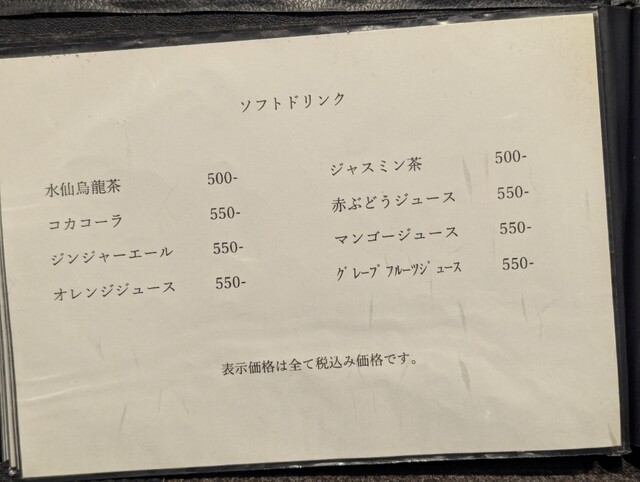 ソフトドリンク
水仙烏龍茶 500-
コカコーラ 550-
ジンジャーエール 550-
オレンジジュース 550-
ジャスミン茶 500-
赤ぶどうジュース 550-
マンゴージュース 550-
ｸﾞﾚｰﾌﾟﾌﾙｰﾂｼﾞｭｰｽ 550-
表示価格は全て税込み価格です。